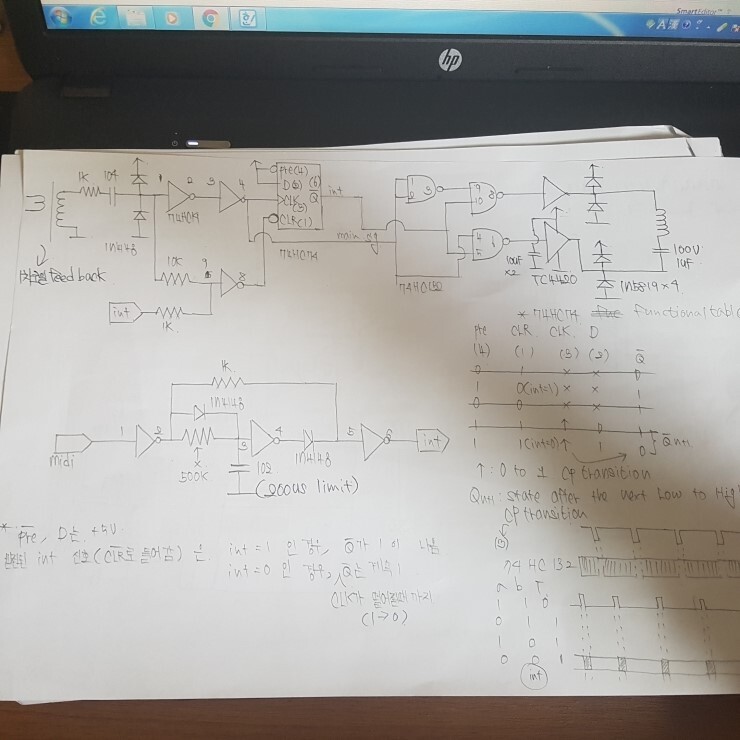 SmartEditor™
hp
1K 104
1 2 3 4
74HC14
1N4148
3차원 feedback
10K
9 8
int
1K
Pre(4)
D(2) (6)
CLK Q̄
(3)
CLR(1)
74HC74
int
main sig
1 2 3
9 10 8
4 5 6
74HC132
10uF
×2
TC4420
100V
1uF
1N5819×4
* 74HC74 functional table
Pre CLR CLK D
(4) (1) (3) (2) Q̄
0 1 × × 0
1 0(int=1) × × 1
0 0 × × 1
1 1 ↑ 0 1
1 1(int=0) ↑ 1 0 Q̄n+1
↑: 0 to 1 cp transition
Qn+1: state after the next Low to High
CP transition
1K
1N4148
midi 1 2 3 4 5 6 int
500K
102
(200us limit)
1N4148
* P̄r̄ē, D는 +5V.
int 신호(C̄L̄R̄로 들어감)은
int = 1 인 경우, Q̄가 1이 나옴
int = 0 인 경우, Q̄는 계속 1
CLK가 떨어질때 까지
(1→0)
74HC132
a b Y
1 1 0
0 1 1
1 0 1
0 0 1
int